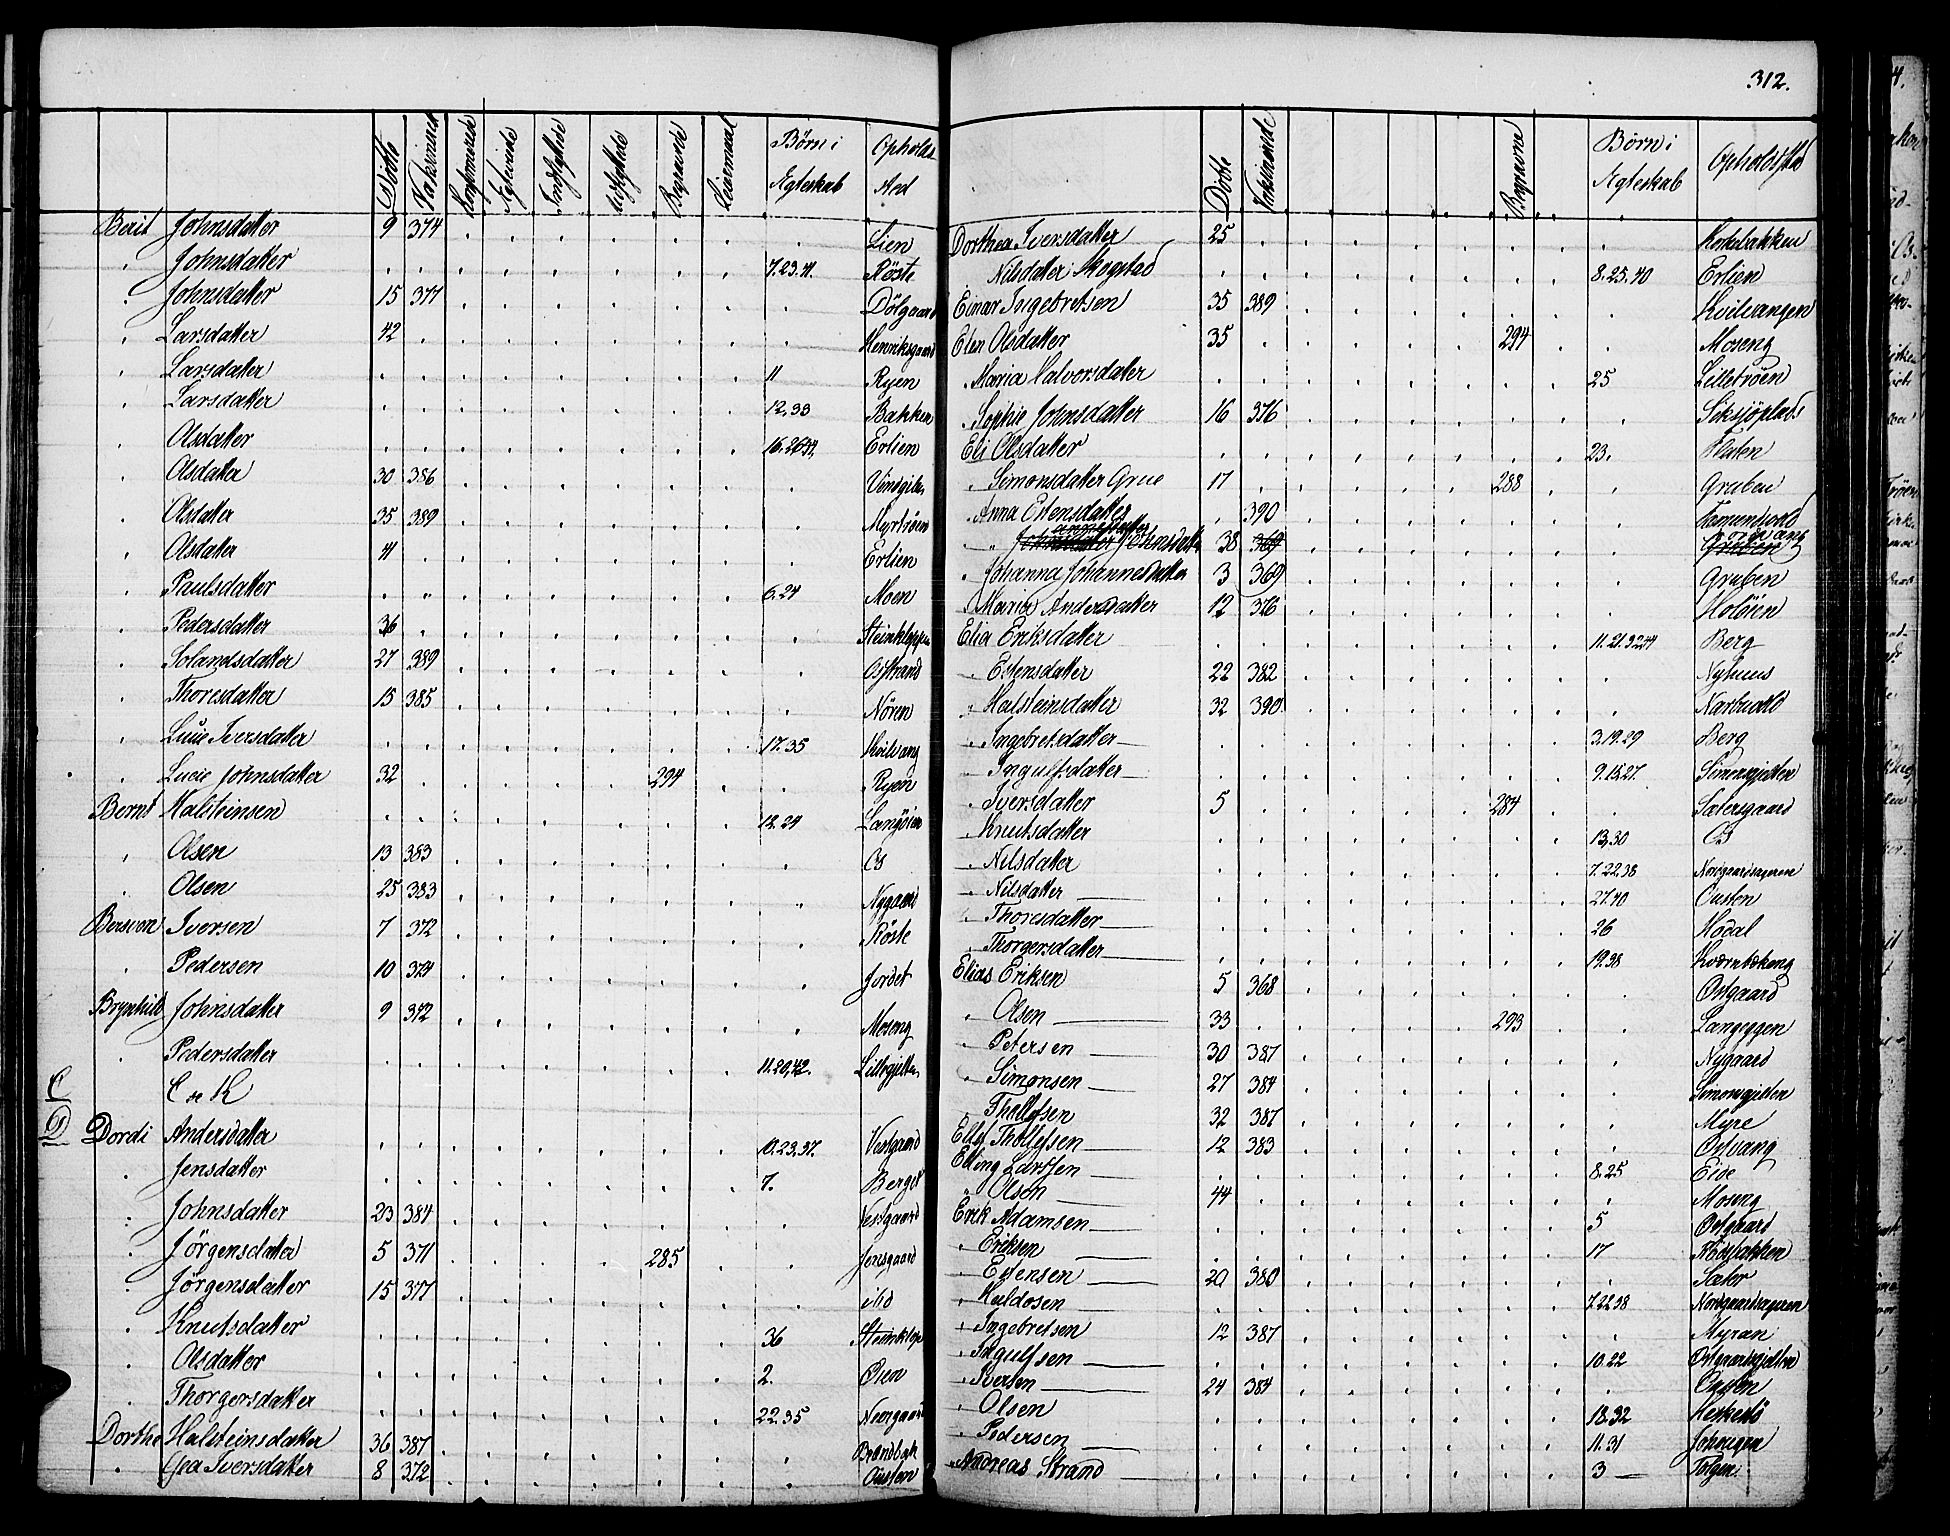 312.
Döbte Vaksinerede Konfirmerede Egteviede Inndflyttede Udflyttede Begravede Leiermaal Børn i Egteskab Opholds Sted
Berit Johnsdatter 9 374 Lien
Johnsdatter 7.23.41. Röste
Johnsdatter 15 377 Dölgaard
Larsdatter 42 Henriksgaard
Larsdatter 11 Ryen
Larsdatter 12.33 Bakken
Olsdatter 16.26.44. Erlien
Olsdatter 30 386 Vindgiken
Olsdatter 35 389 Myrtröen
Olsdatter 41 Erlien
Paulsdatter 6.24 Moen
Pedersdatter 36 Steinkleppen
Solandsdatter 27 389 Osstrand
Thoresdatter 15 385 Nören
Lucie Iversdatter 17.35 Kvilvang
Lucie Johnsdatter 32 294 Ryen
Bernt Halsteinsen 12.24 Langöien
Olsen 13 383 Os
Olsen 25 383 Nygaard
Bersven Iversen 7 372 Röste
Pedersen 10 374 Jordet
Brynhild Johnsdatter 9 372 Moseng
Pedersdatter 11.20,42. Lillegjelten
C C se K
D Dordi Andersdatter 10.23.37. Vestgaard
Jensdatter 7. Berget
Johnsdatter 23 384 Vestgaard
Jörgensdatter 5 371 285 Jensgaard
Jörgensdatter 15 377 ibid
Knutsdatter 36 Steinklep
Olsdatter 2. Öien
Thorgersdatter 22.35 Neergaard
Dorthe Halsteinsdatter 36 387 Brændbak
Iversdatter 8 372 Ousten
Döbte Vaksinerede Begravne Børn i Egteskab Opholdssted
Dorthea Iversdatter 25 Korkebakken
Nilsdatter Skogstad 8.25.40 Erlien
Einar Ingebretsen 35 389 Kvilvangen
Elen Olsdatter 35 294 Moseng
Maria Halvorsdatter 25 Lilletröen
Sophie Johnsdatter 16 376 Siksjöplads
Eli Olsdatter 23. Floten
Simonsdatter Grue 17 288 Gruben
Anna Estensdatter 390 Tommensund
Johnsdatter 38 369 Gruben
Johanna Johannesdatter 3 369 Gruben
Maria Andersdatter 12 376 Holöien
Elia Eriksdatter 11.21.32.44 Berg
Estensdatter 22 382 Nyhuus
Halsteinsdatter 32 390 Narbuvold
Ingebretsdatter 3.19.29 Berg
Ingulfsdatter 9.15.27 Simensgjelten
Iversdatter 5 284 Sætersgaard
Knutsdatter 13,30 Os
Nilsdatter 7.22.38 Norgaardsageren
Nilsdatter 27.40 Ousten
Thoresdatter 26 Hodal
Thorgersdatter 19.38 Kværnbekeng
Elias Eriksen 5 368 Østgaard
Olsen 33 293 Langeggen
Petersen 30 387 Nygaard
Simonsen 27 384 Simonsgjelten
Thollefsen 32 387 Myre
Ellef Thollefsen 12 383 Østvang
Elling Larssen 8.25 Eide
Olsen 44 Moseng
Erik Adamsen 5 Østgaard
Eriksen 17
Estensen 20 380 Sæter
Haldosen 7.22.38 Nordgaardsageren
Ingebretsen 12 387 Myran
Ingulfsen 10.22 Østgaardsgjelten
Iversen 24 384 Ousten
Olsen 18.32
Pedersen 11.31
Andreas Strand 3 Tolgen